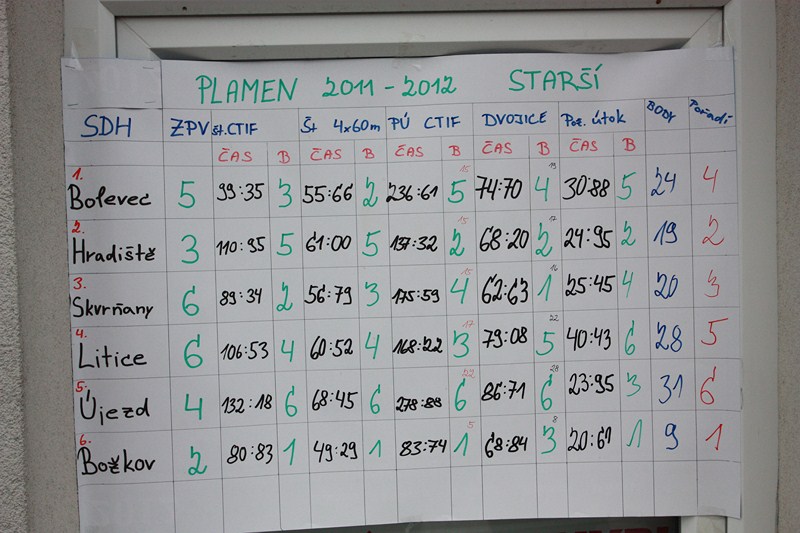 PLAMEN 2011 - 2012 STARŠÍ
SDH ZPV št.CTIF Št 4x60m PÚ CTIF DVOJICE Poz. útok BODY Pořadí
ČAS B ČAS B ČAS B ČAS B ČAS B
1. Bolevec 5 99:35 3 55:66 2 236:61 15 5 74:70 19 4 30:88 5 24 4
2. Hradiště 3 110:95 5 61:00 5 137:32 15 2 68:20 17 2 24:95 2 19 2
3. Skvrňany 6 89:34 2 56:79 3 175:59 15 4 62:63 16 1 25:45 4 20 3
4. Litice 6 106:53 4 60:52 4 168:22 17 3 79:08 22 5 40:43 6 28 5
5. Újezd 4 132:18 6 68:45 6 278:88 22 6 86:71 28 6 23:95 3 31 6
6. Božkov 2 80:83 1 49:29 1 83:74 5 1 68:84 8 3 20:61 1 9 1